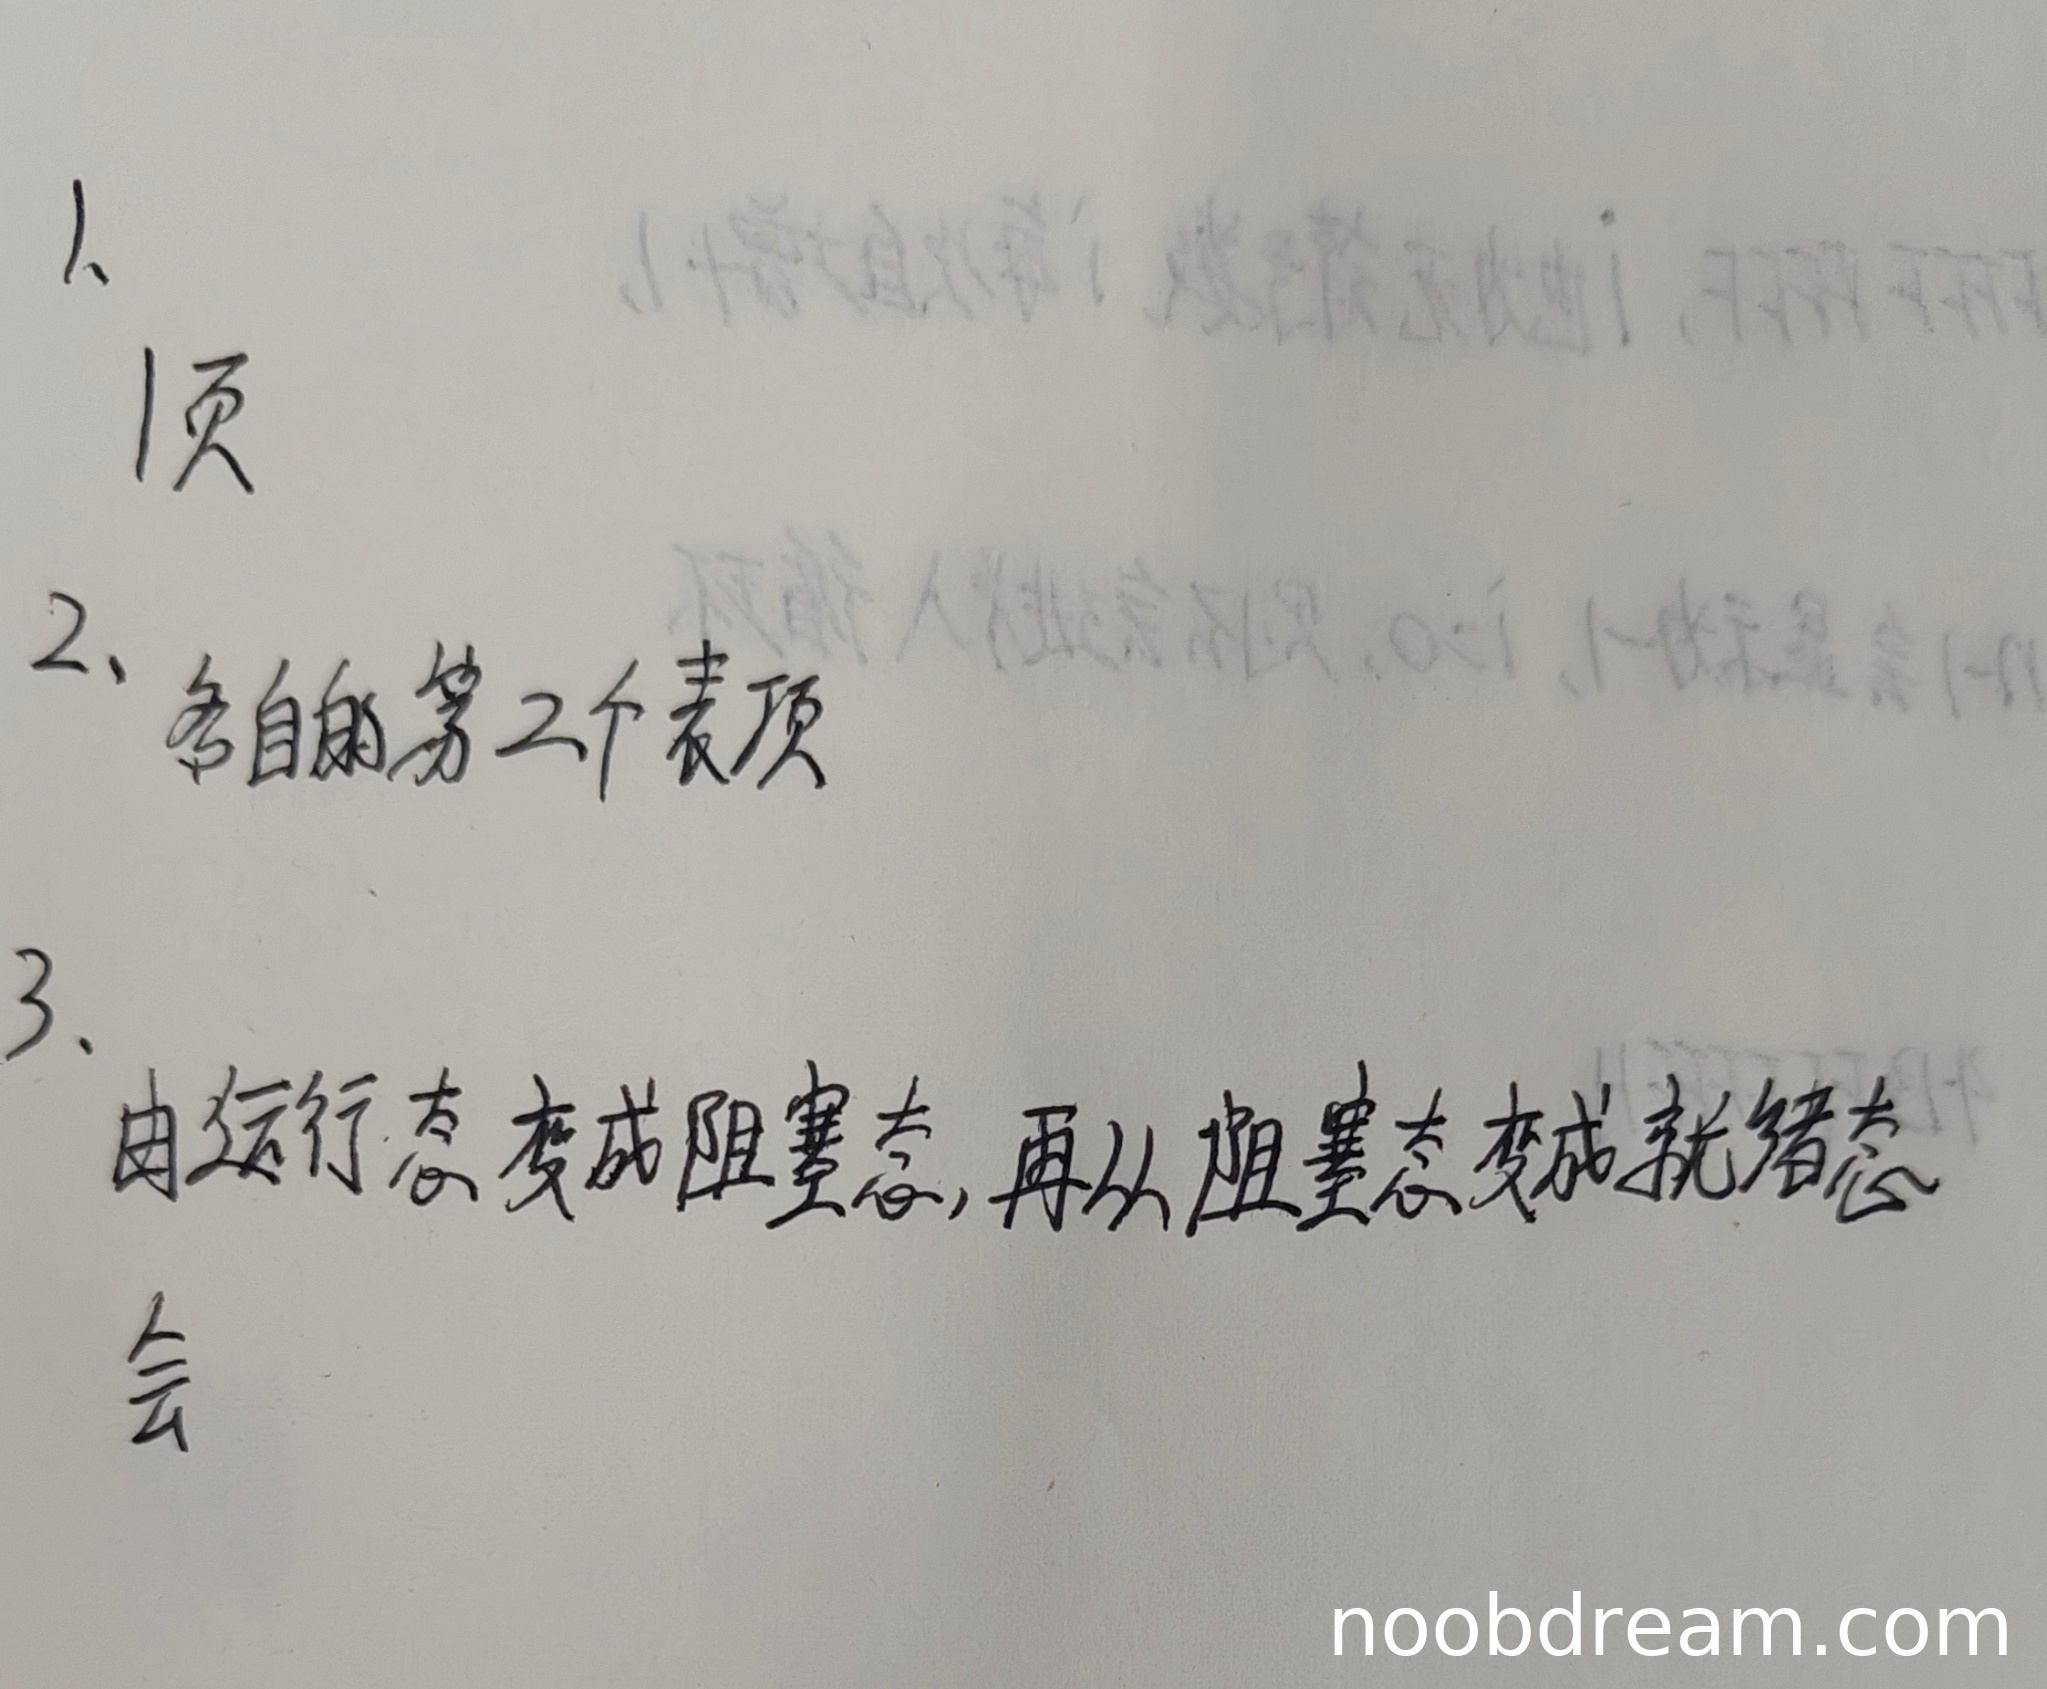 1、
1页
2、
各自的第二个表项
3、
由运行态变成阻塞态,再从阻塞态变成就绪态
会
noobdream.com